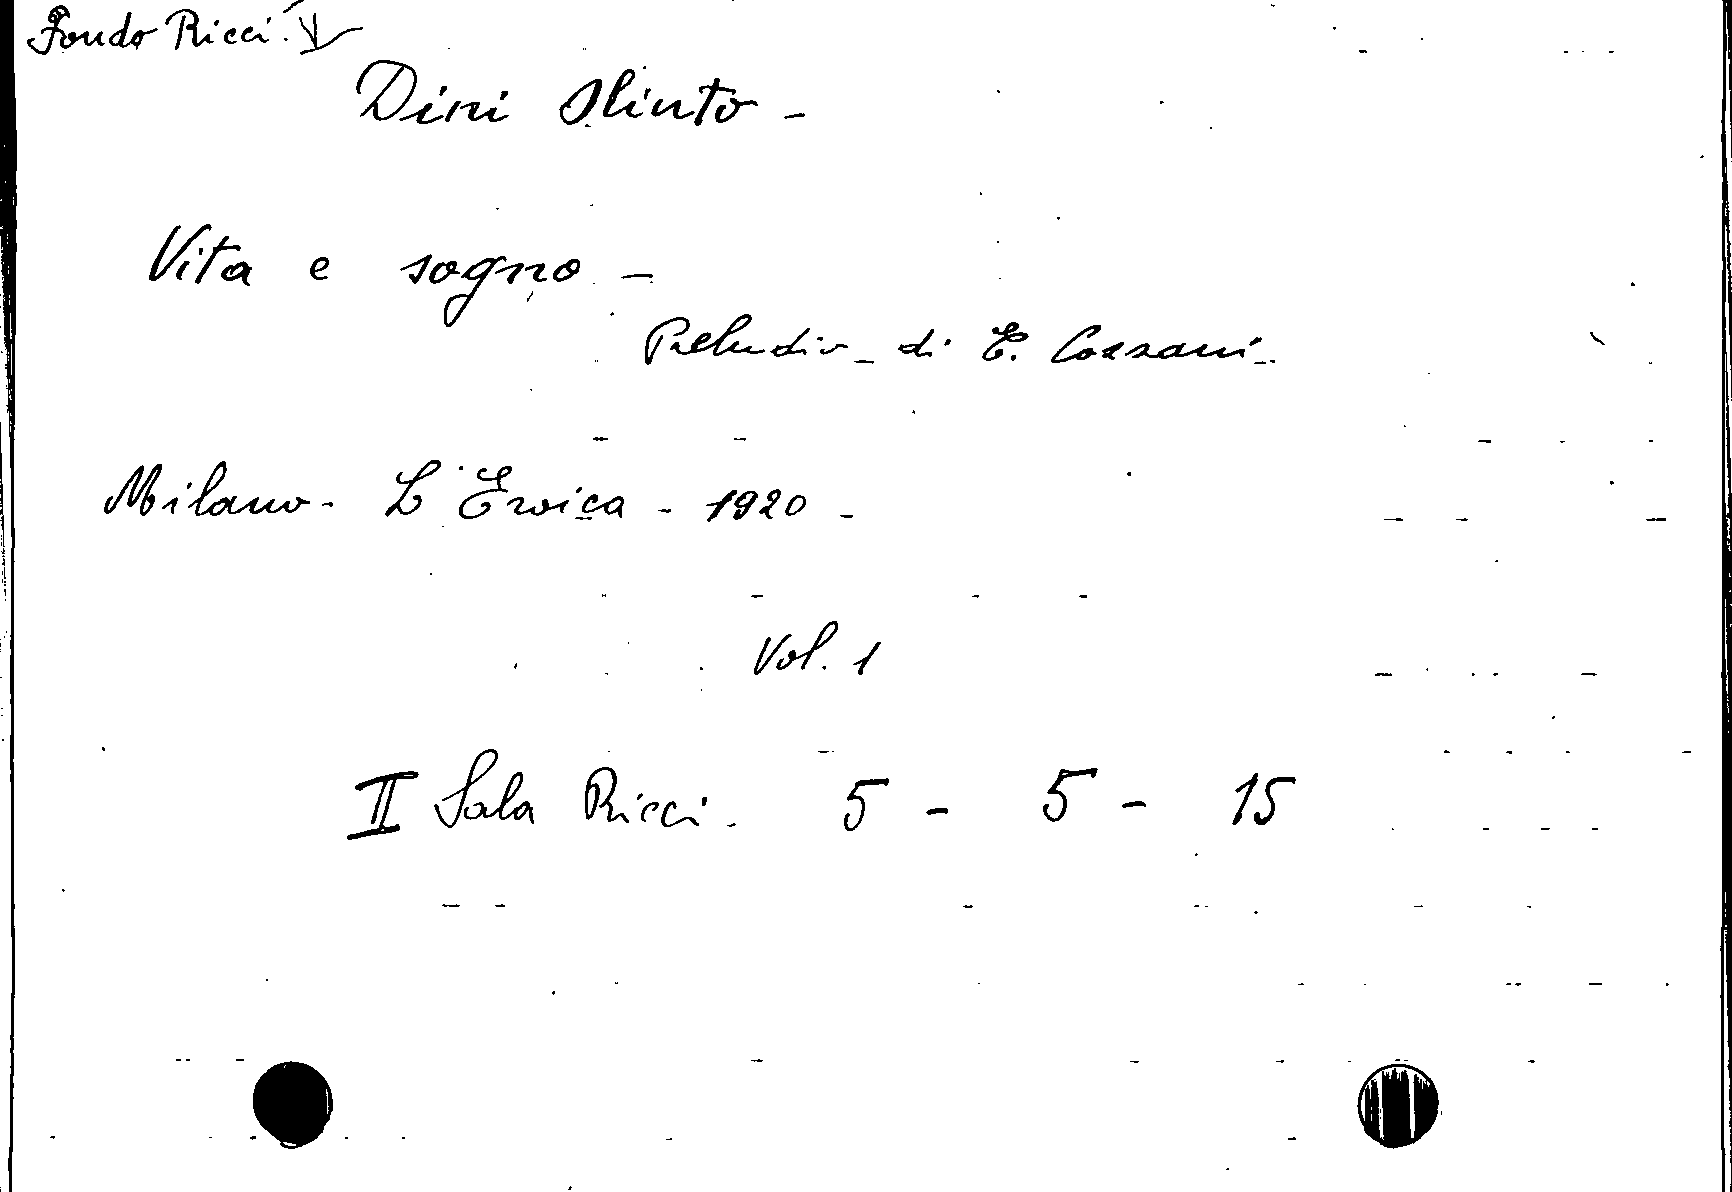 Fondo Ricci.
Dini Olinto -
Vita e sogno -
Preludio - di E. Cozzani -
Milano - L'Eroica - 1920 -
Vol. 1
II Sala Ricci - 5 - 5 - 15